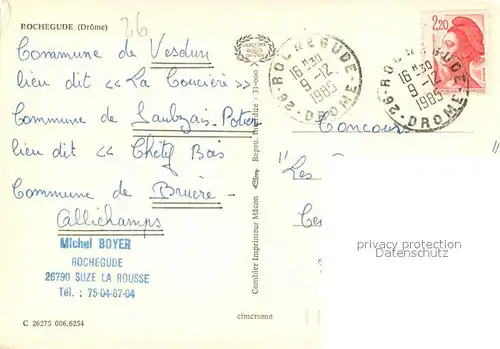 ROCHEGUDE (Drôme)
26
Commune de Vesdun
lieu dit << La Coucière >>
Commune de Saulzais-Potier
lieu dit << Chétif Bois
Commune de Bruère-
Allichamps
Michel BOYER
ROCHEGUDE
26790 SUZE LA ROUSSE
Tél. : 75-04-87-04
C 26275 006,6254
Combier Imprimeur Mâcon
Repro. Interdite - 31-000
cimcrome
26 - ROCHEGUDE - DROME
16 H 30
9-12
1985
2,20
26 - ROCHEGUDE - DROME
16 H 30
9-12
1985
Concours
" Les "
privacy protection
Datenschutz